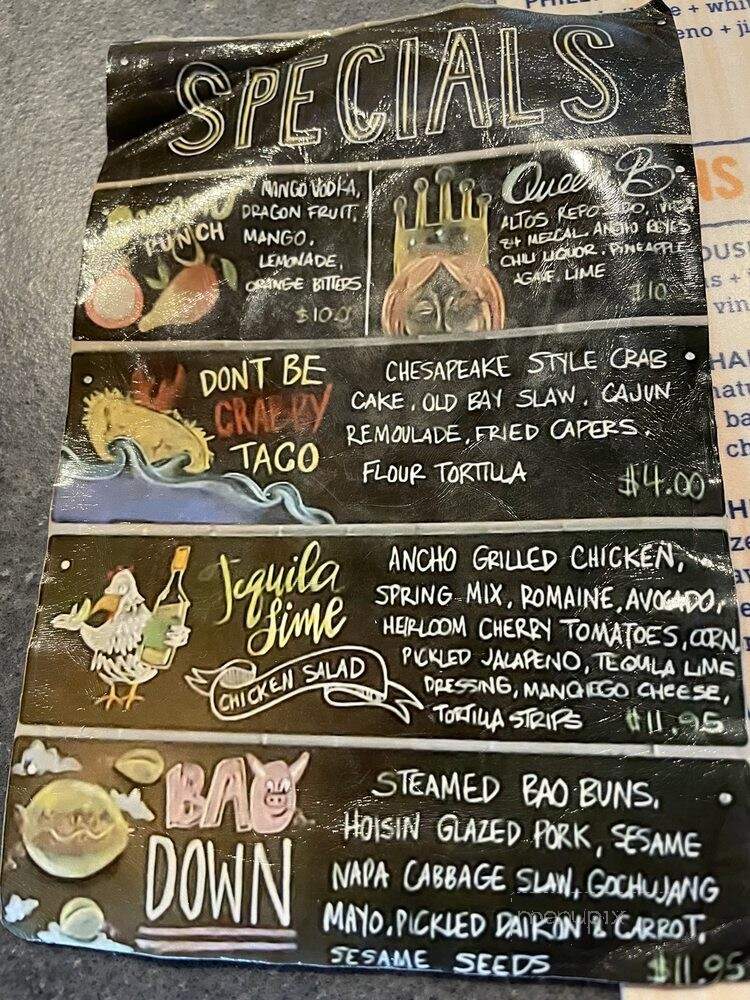 SPECIALS
PUNCH
MANGO VODKA,
DRAGON FRUIT,
MANGO,
LEMONADE,
ORANGE BITTERS
$10.0
Queen B
ALTOS REPOSADO, VIDA
MEZCAL, ANCHO REYES
CHILI LIQUOR, PINEAPPLE
AGAVE, LIME
$10
DONT BE
CRABBY
TACO
CHESAPEAKE STYLE CRAB
CAKE, OLD BAY SLAW, CAJUN
REMOULADE, FRIED CAPERS,
FLOUR TORTILLA
$4.00
Tequila
Lime
CHICKEN SALAD
ANCHO GRILLED CHICKEN,
SPRING MIX, ROMAINE, AVOCADO,
HEIRLOOM CHERRY TOMATOES, CORN,
PICKLED JALAPENO, TEQUILA LIME
DRESSING, MANCHEGO CHEESE,
TORTILLA STRIPS $11.95
BAO
DOWN
STEAMED BAO BUNS,
HOISIN GLAZED PORK, SESAME
NAPA CABBAGE SLAW, GOCHUJANG
MAYO, PICKLED DAIKON & CARROT,
SESAME SEEDS $11.95
menupix